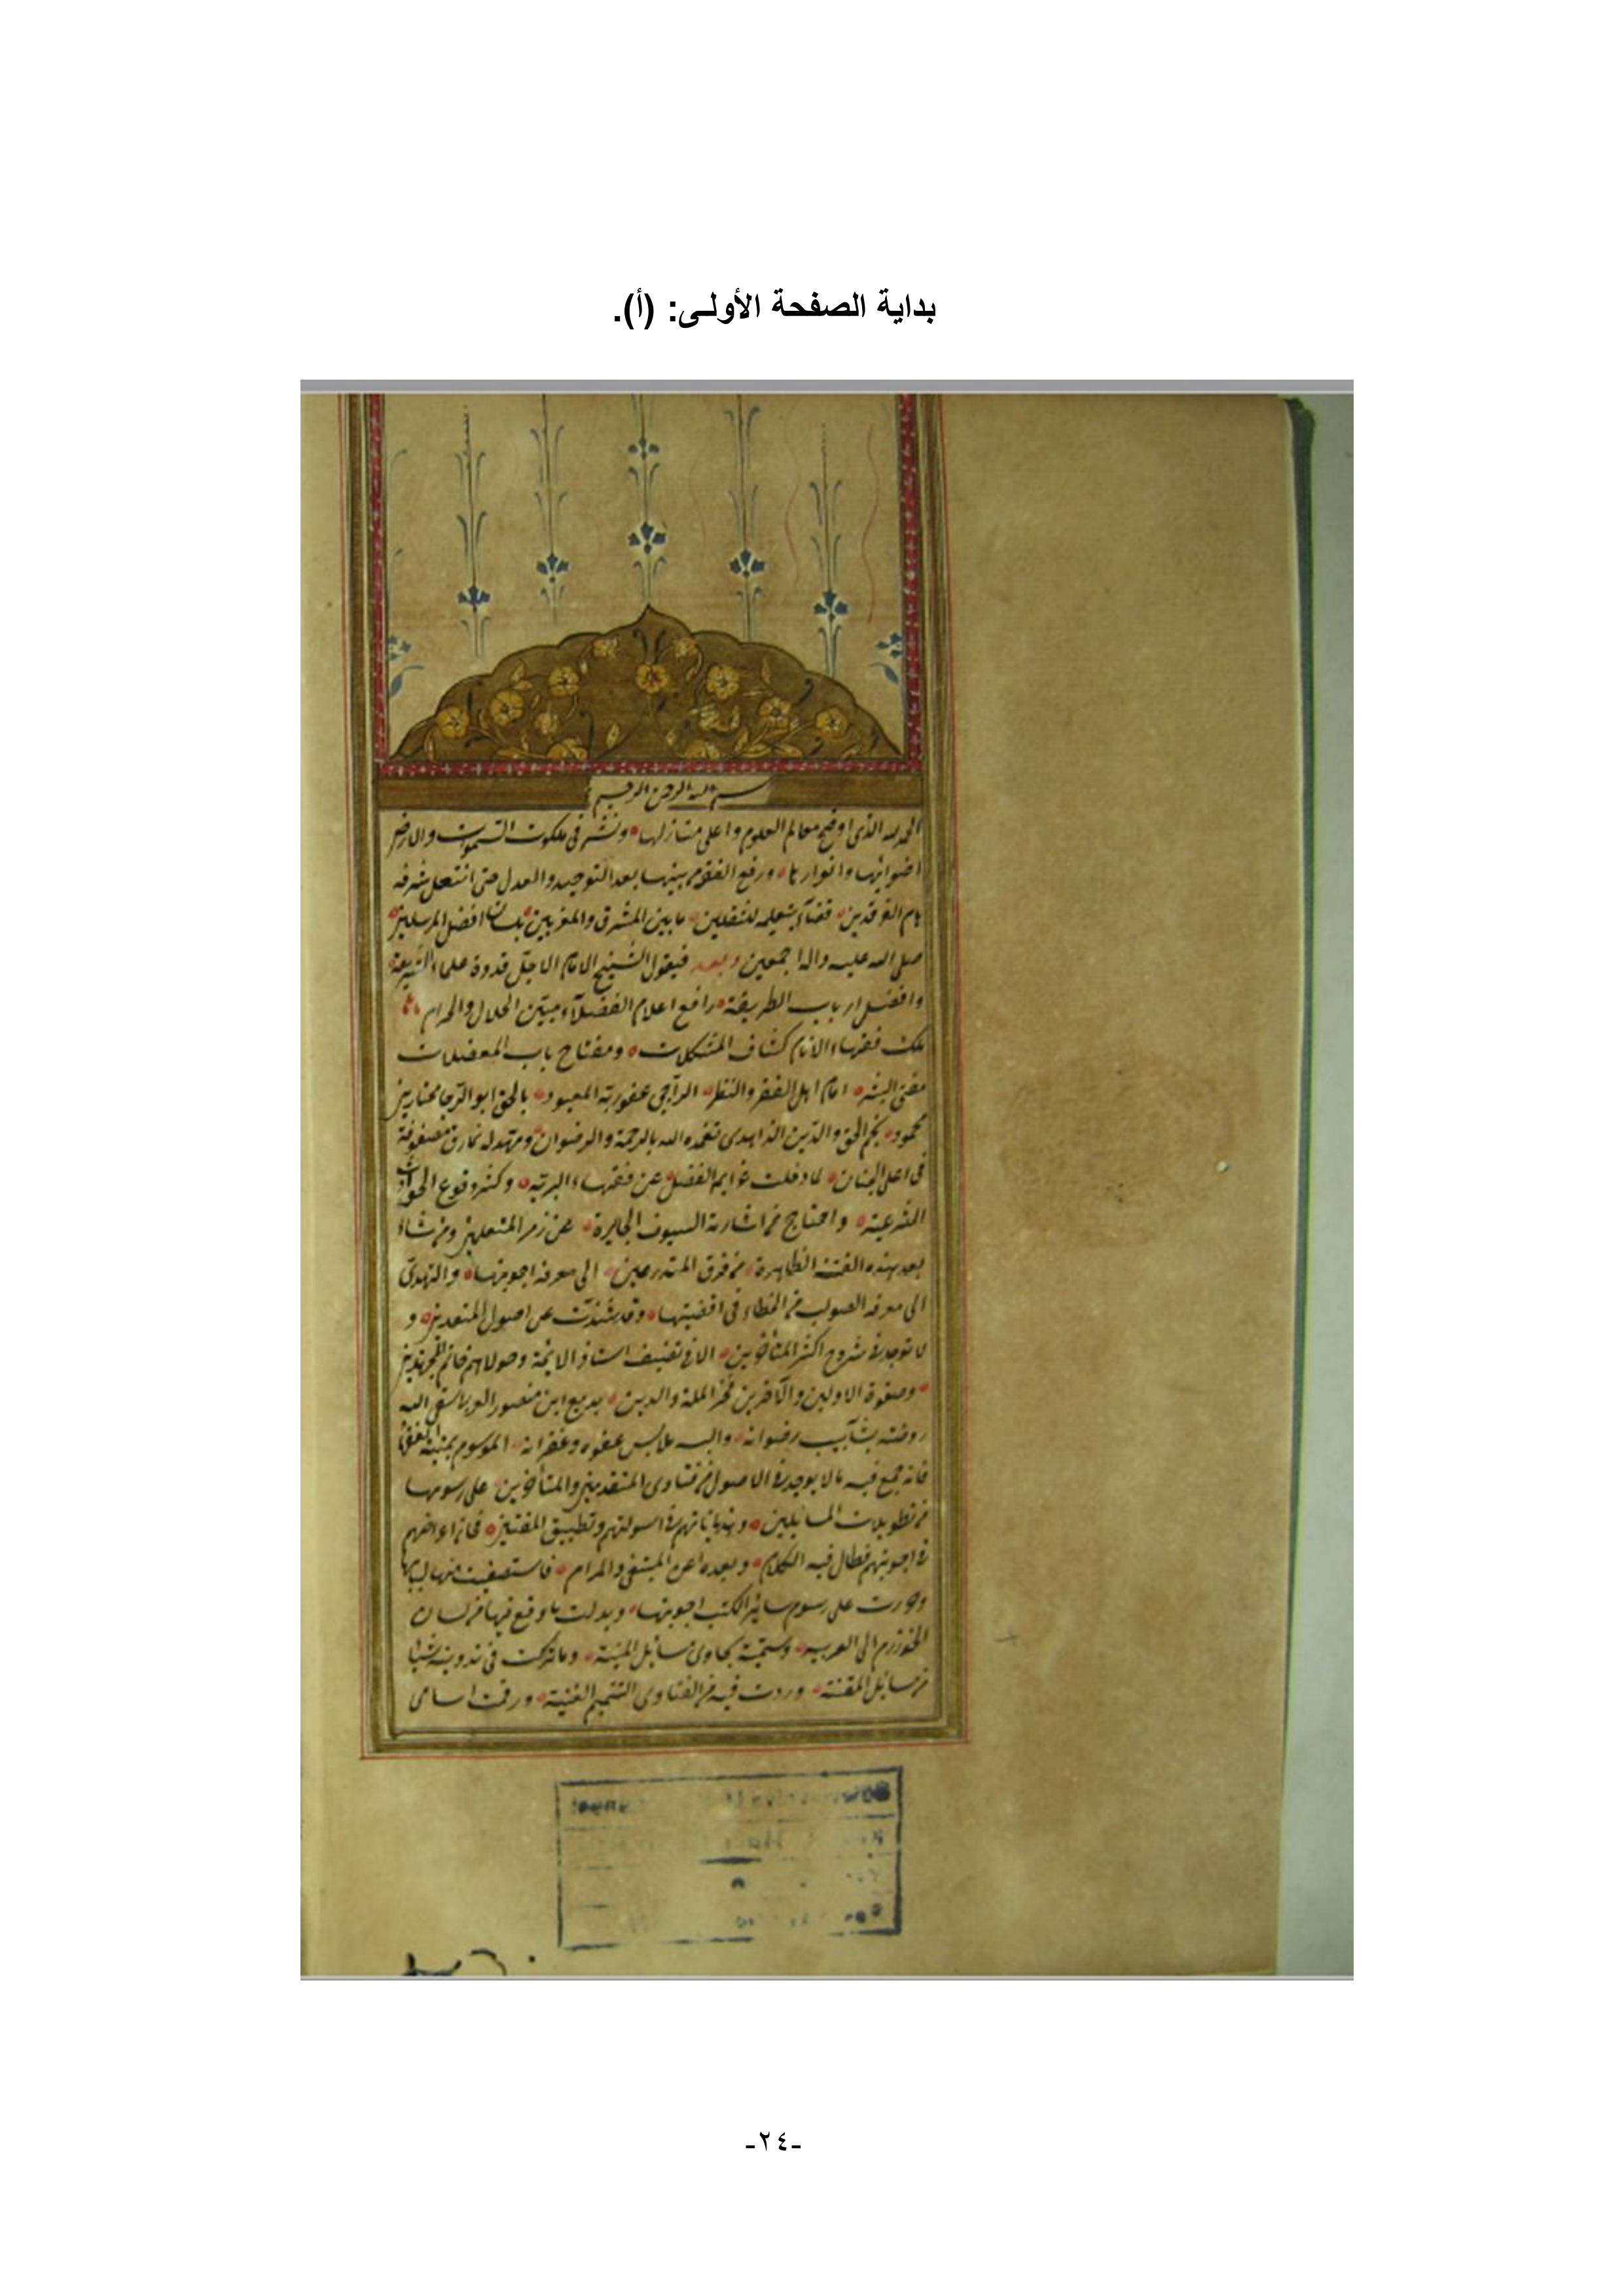 بداية الصفحة الأولـى: (أ).
بسم الله الرحمن الرحيم
الحمد لله الذى اوضح معالم العلوم واعلى منازلها ونشر فى ملكوت السموات والارض
اضوائها وانوارها ورفع الفقه من بينها بعد التوحيد والعدل حتى انتعل شرفه
هام الفرقدين قضآء بتعليمه للثقلين ما بين المشرق والمغربين بلسان افضل المرسلين
صلى الله عليه واله اجمعين وبعد فيقول الشيخ الامام الاجل قدوة علماء الشريعة
وافضل ارباب الطريقة رافع اعلام الفضلآء مبين الحلال والحرام
ملك فقهاء الانام كشاف المشكلات ومفتاح باب المعضلات
مفتى البشر امام اهل الفقر والنظر الراجى عفو ربه المعبود بالحق ابو الرجا مختار بن
محمود نجم الحق والدين الزاهدى تغمده الله بالرحمة والرضوان ومهد له نمارق مصفوفة
فى اعلى الجنان لما دخلت الفضل عن فقهاء البرية وكثر وقوع الحوادث
الشرعية واحتاج من اشارته السيوف الجايرة عن زمر المتعلمين ومن نشاء
بعد هذه الفتنة الظاهرة من فرق المتدرسين الى معرفة اجوبتها والتهدى
الى معرفة الصواب من الخطاء فى اقضيتها وقد شذت عن اصول المتقدمين و
لا توجد فى شروح اكثر المتأخرين الا فى تصنيف استاذ الائمة ومولاهم خاتم المجتهدين
وصفوة الاولين والآخرين فخر الملة والدين بديع ابن منصور العرباسقى الله
روضته شآبيب رضوانه والبسه ملابس عفوه وغفرانه الموسوم بمنية الفقهاء
فانه جمع فيه مالا يوجد فى الاصول من فتاوى المتقدمين والمتأخرين على رسومها
من تطويلات السائلين وهذياناتهم فى اسولتهم وتطبيق المفتين اعراضهم
فى اجوبتهم فطال فيه الكلام وبعده عن المبتغى والمرام فاستصفيت منها لبابها
وحررت على رسوم سائر الكتب اجوبتها وبدلت ما وقع فيها من لسان
الخوارزم الى العربيه وسميته بحاوى مسائل المنية وما تركت فى تدوينه شيا
من مسائل وزدت فيه من الفتاوى التتميم الغنية ورقمت اسامى
-٢٤-